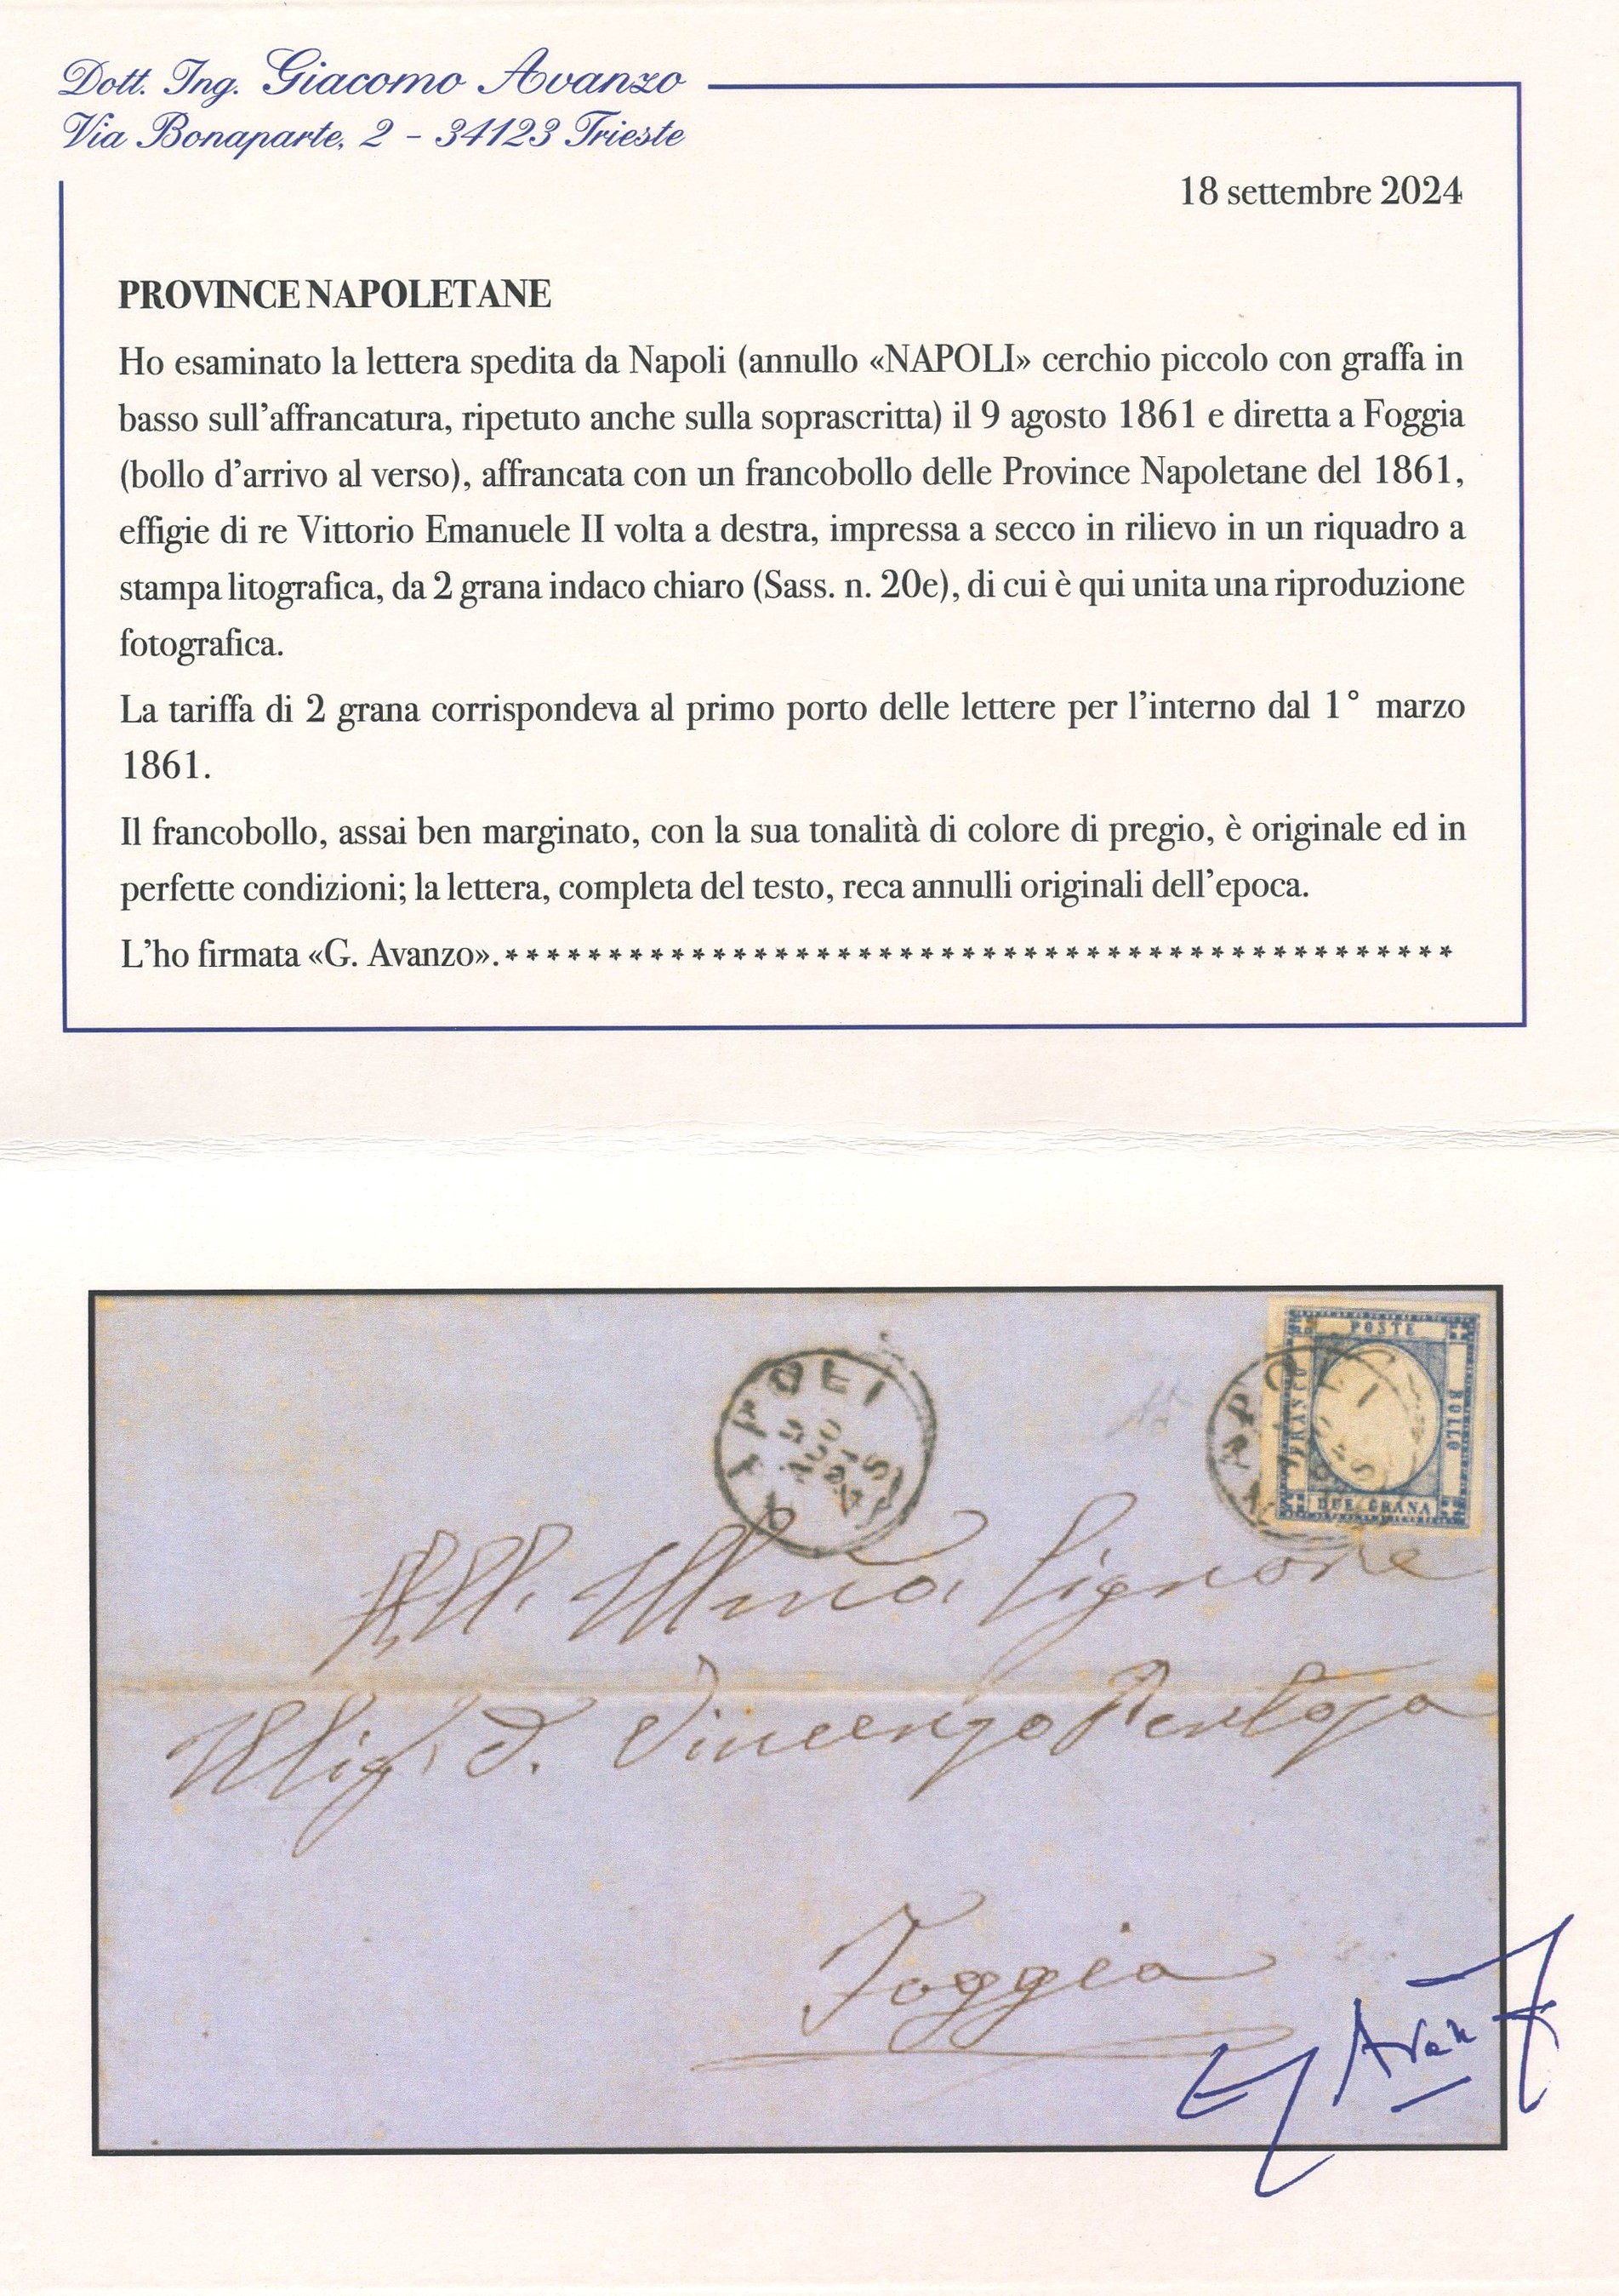 Dott. Ing. Giacomo Avanzo
Via Bonaparte, 2 - 34123 Trieste
18 settembre 2024
PROVINCE NAPOLETANE
Ho esaminato la lettera spedita da Napoli (annullo «NAPOLI» cerchio piccolo con graffa in
basso sull'affrancatura, ripetuto anche sulla soprascritta) il 9 agosto 1861 e diretta a Foggia
(bollo d'arrivo al verso), affrancata con un francobollo delle Province Napoletane del 1861,
effigie di re Vittorio Emanuele II volta a destra, impressa a secco in rilievo in un riquadro a
stampa litografica, da 2 grana indaco chiaro (Sass. n. 20e), di cui è qui unita una riproduzione
fotografica.
La tariffa di 2 grana corrispondeva al primo porto delle lettere per l'interno dal 1° marzo
1861.
Il francobollo, assai ben marginato, con la sua tonalità di colore di pregio, è originale ed in
perfette condizioni; la lettera, completa del testo, reca annulli originali dell'epoca.
L'ho firmata «G. Avanzo».**********************************************
NAPOLI
AGO
POSTE
FRANCO
BOLLO
DUE GRANA
NAPO
Signore
D. Vincenzo
Foggia